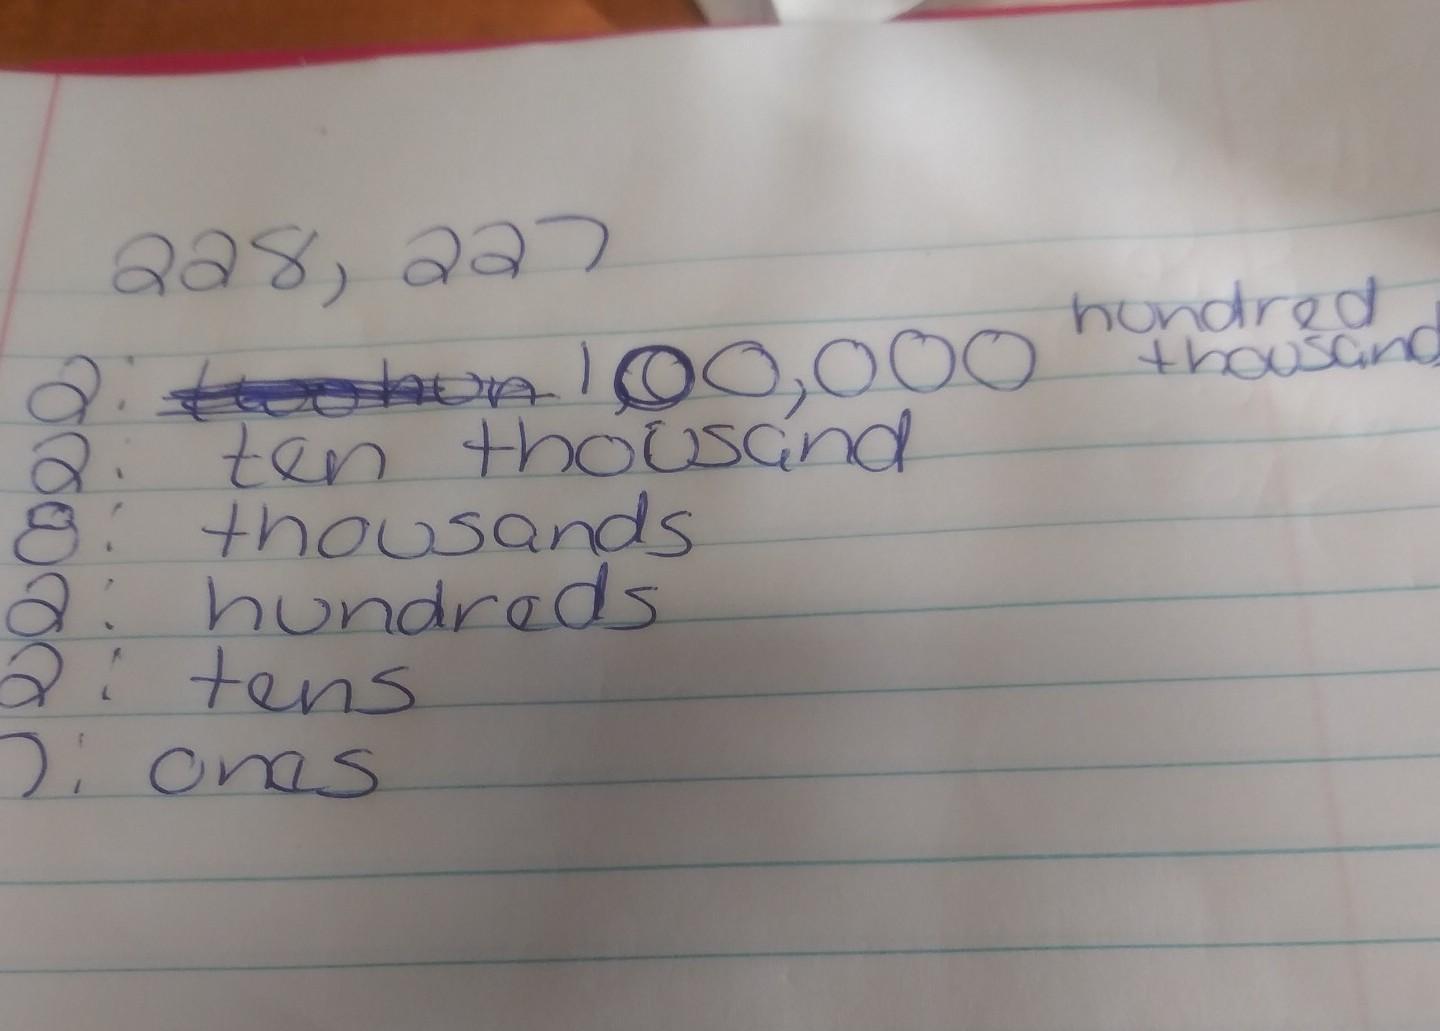 228, 227
2: 100,000 hundred thousand
2: ten thousand
8: thousands
2: hundreds
2: tens
7: ones